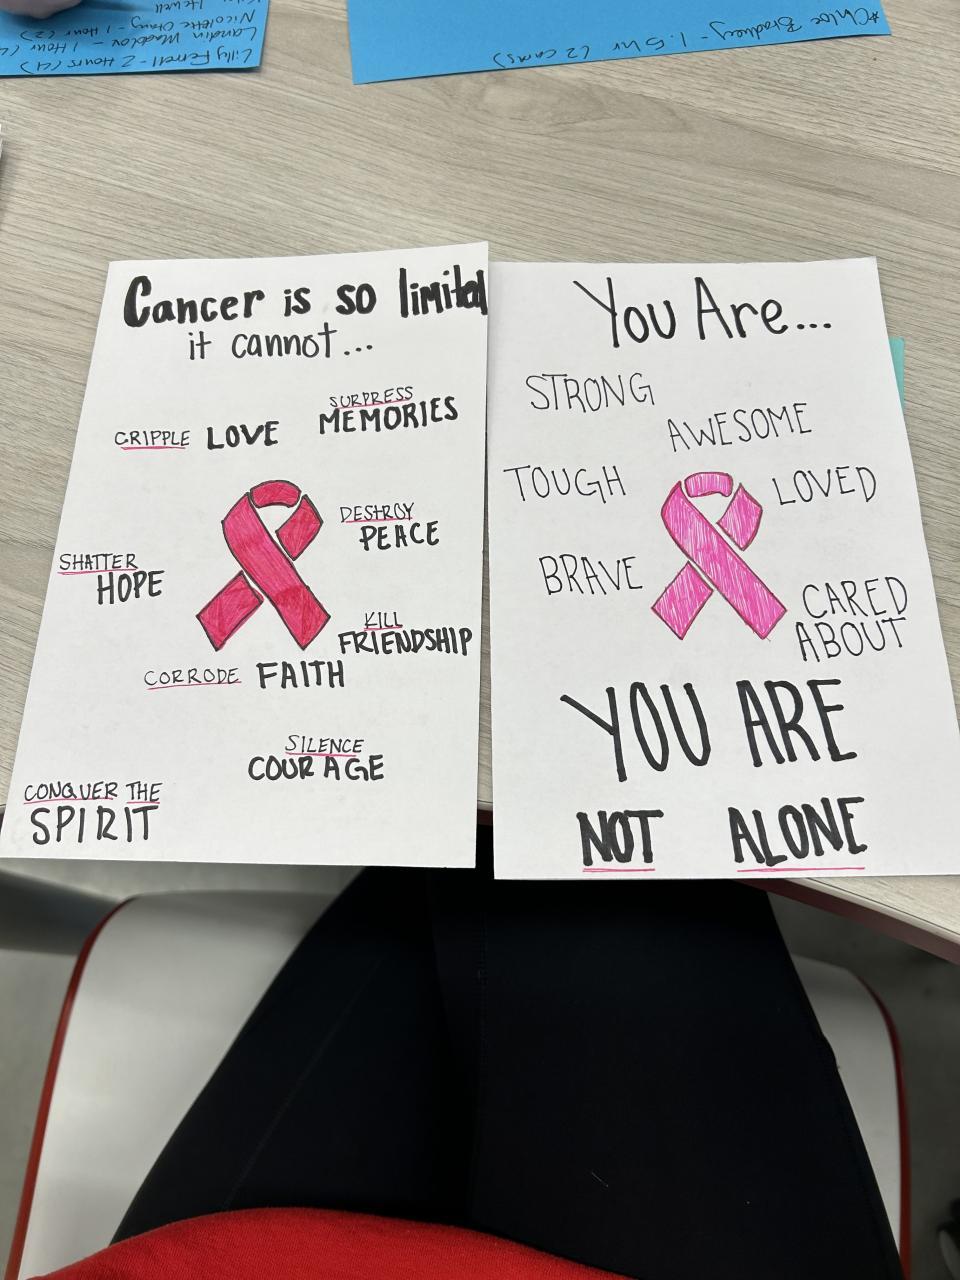 Howell
Nicolette Otang - 1 Hour (2)
Landin Maddox - 1 Hour (
Lilly Ferrell - 2 Hours (4)
*Chloe Braduey - 1.5 hr (2 cards)
Cancer is so limited
it cannot...
SURPRESS
MEMORIES
CRIPPLE LOVE
DESTROY
PEACE
SHATTER
HOPE
KILL
FRIENDSHIP
CORRODE FAITH
SILENCE
COURAGE
CONQUER THE
SPIRIT
You Are...
STRONG
AWESOME
TOUGH
LOVED
BRAVE
CARED
ABOUT
YOU ARE
NOT ALONE